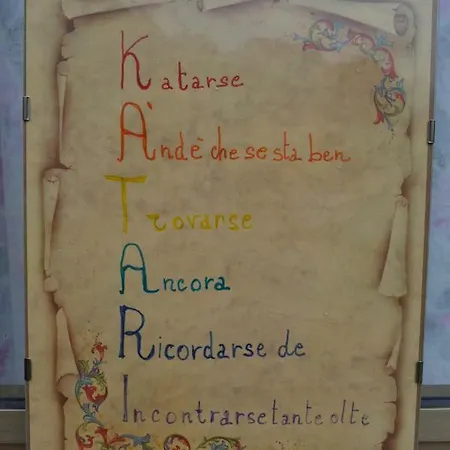 Katarse
Àndè che se sta ben
Trovarse
Ancora
Ricordarse de
Incontrarse tante olte